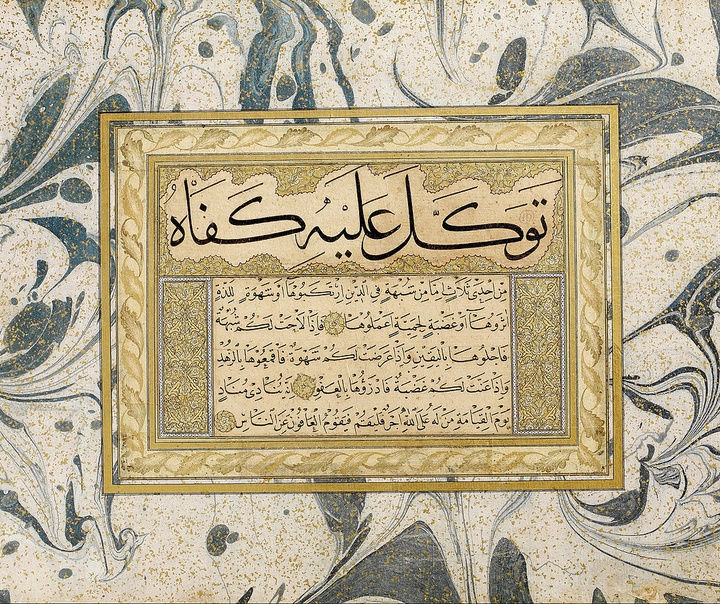 تَوَكَّلَ عَلَيْهِ كَفَاهُ
مِنْ اِحْدَى ثَلَاثٍ اِمَّا مِنْ شُبْهَةٍ فِي الدِّينِ ارْتَكَبُوهَا اَوْ شَهْوَةٍ لِلَذَّةٍ
اٰثَرُوهَا اَوْ غَضْبَةٍ لِحَمِيَّةٍ اَعْمَلُوهَا فَاِذَا لَاحَتْ لَكُمْ شُبْهَةٌ
فَاجْلُوهَا بِالْيَقِينِ وَاِذَا عَرَضَتْ لَكُمْ شَهْوَةٌ فَاقْمَعُوهَا بِالزُّهْدِ
وَاِذَا عَنَتْ لَكُمْ غَضْبَةٌ فَادْرَؤُهَا بِالْعَفْوِ اِنَّهُ يُنَادِى مُنَادٍ
يَوْمَ الْقِيَامَةِ مَنْ لَهُ عَلَى اللّٰهِ اَجْرٌ فَلْيَقُمْ فَيَقُومُ الْعَافُونَ عَنِ النَّاسِ